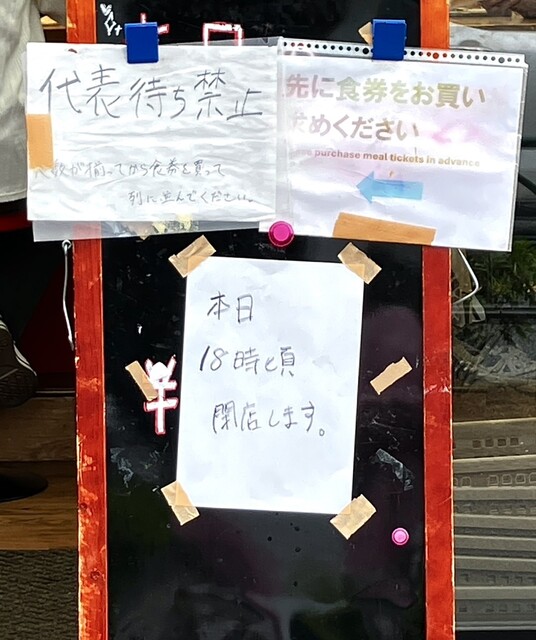 代表待ち禁止
人数が揃ってから食券を買って
列に並んでください。
先に食券をお買い
求めください
purchase meal tickets in advance
本日
18時頃
閉店します。